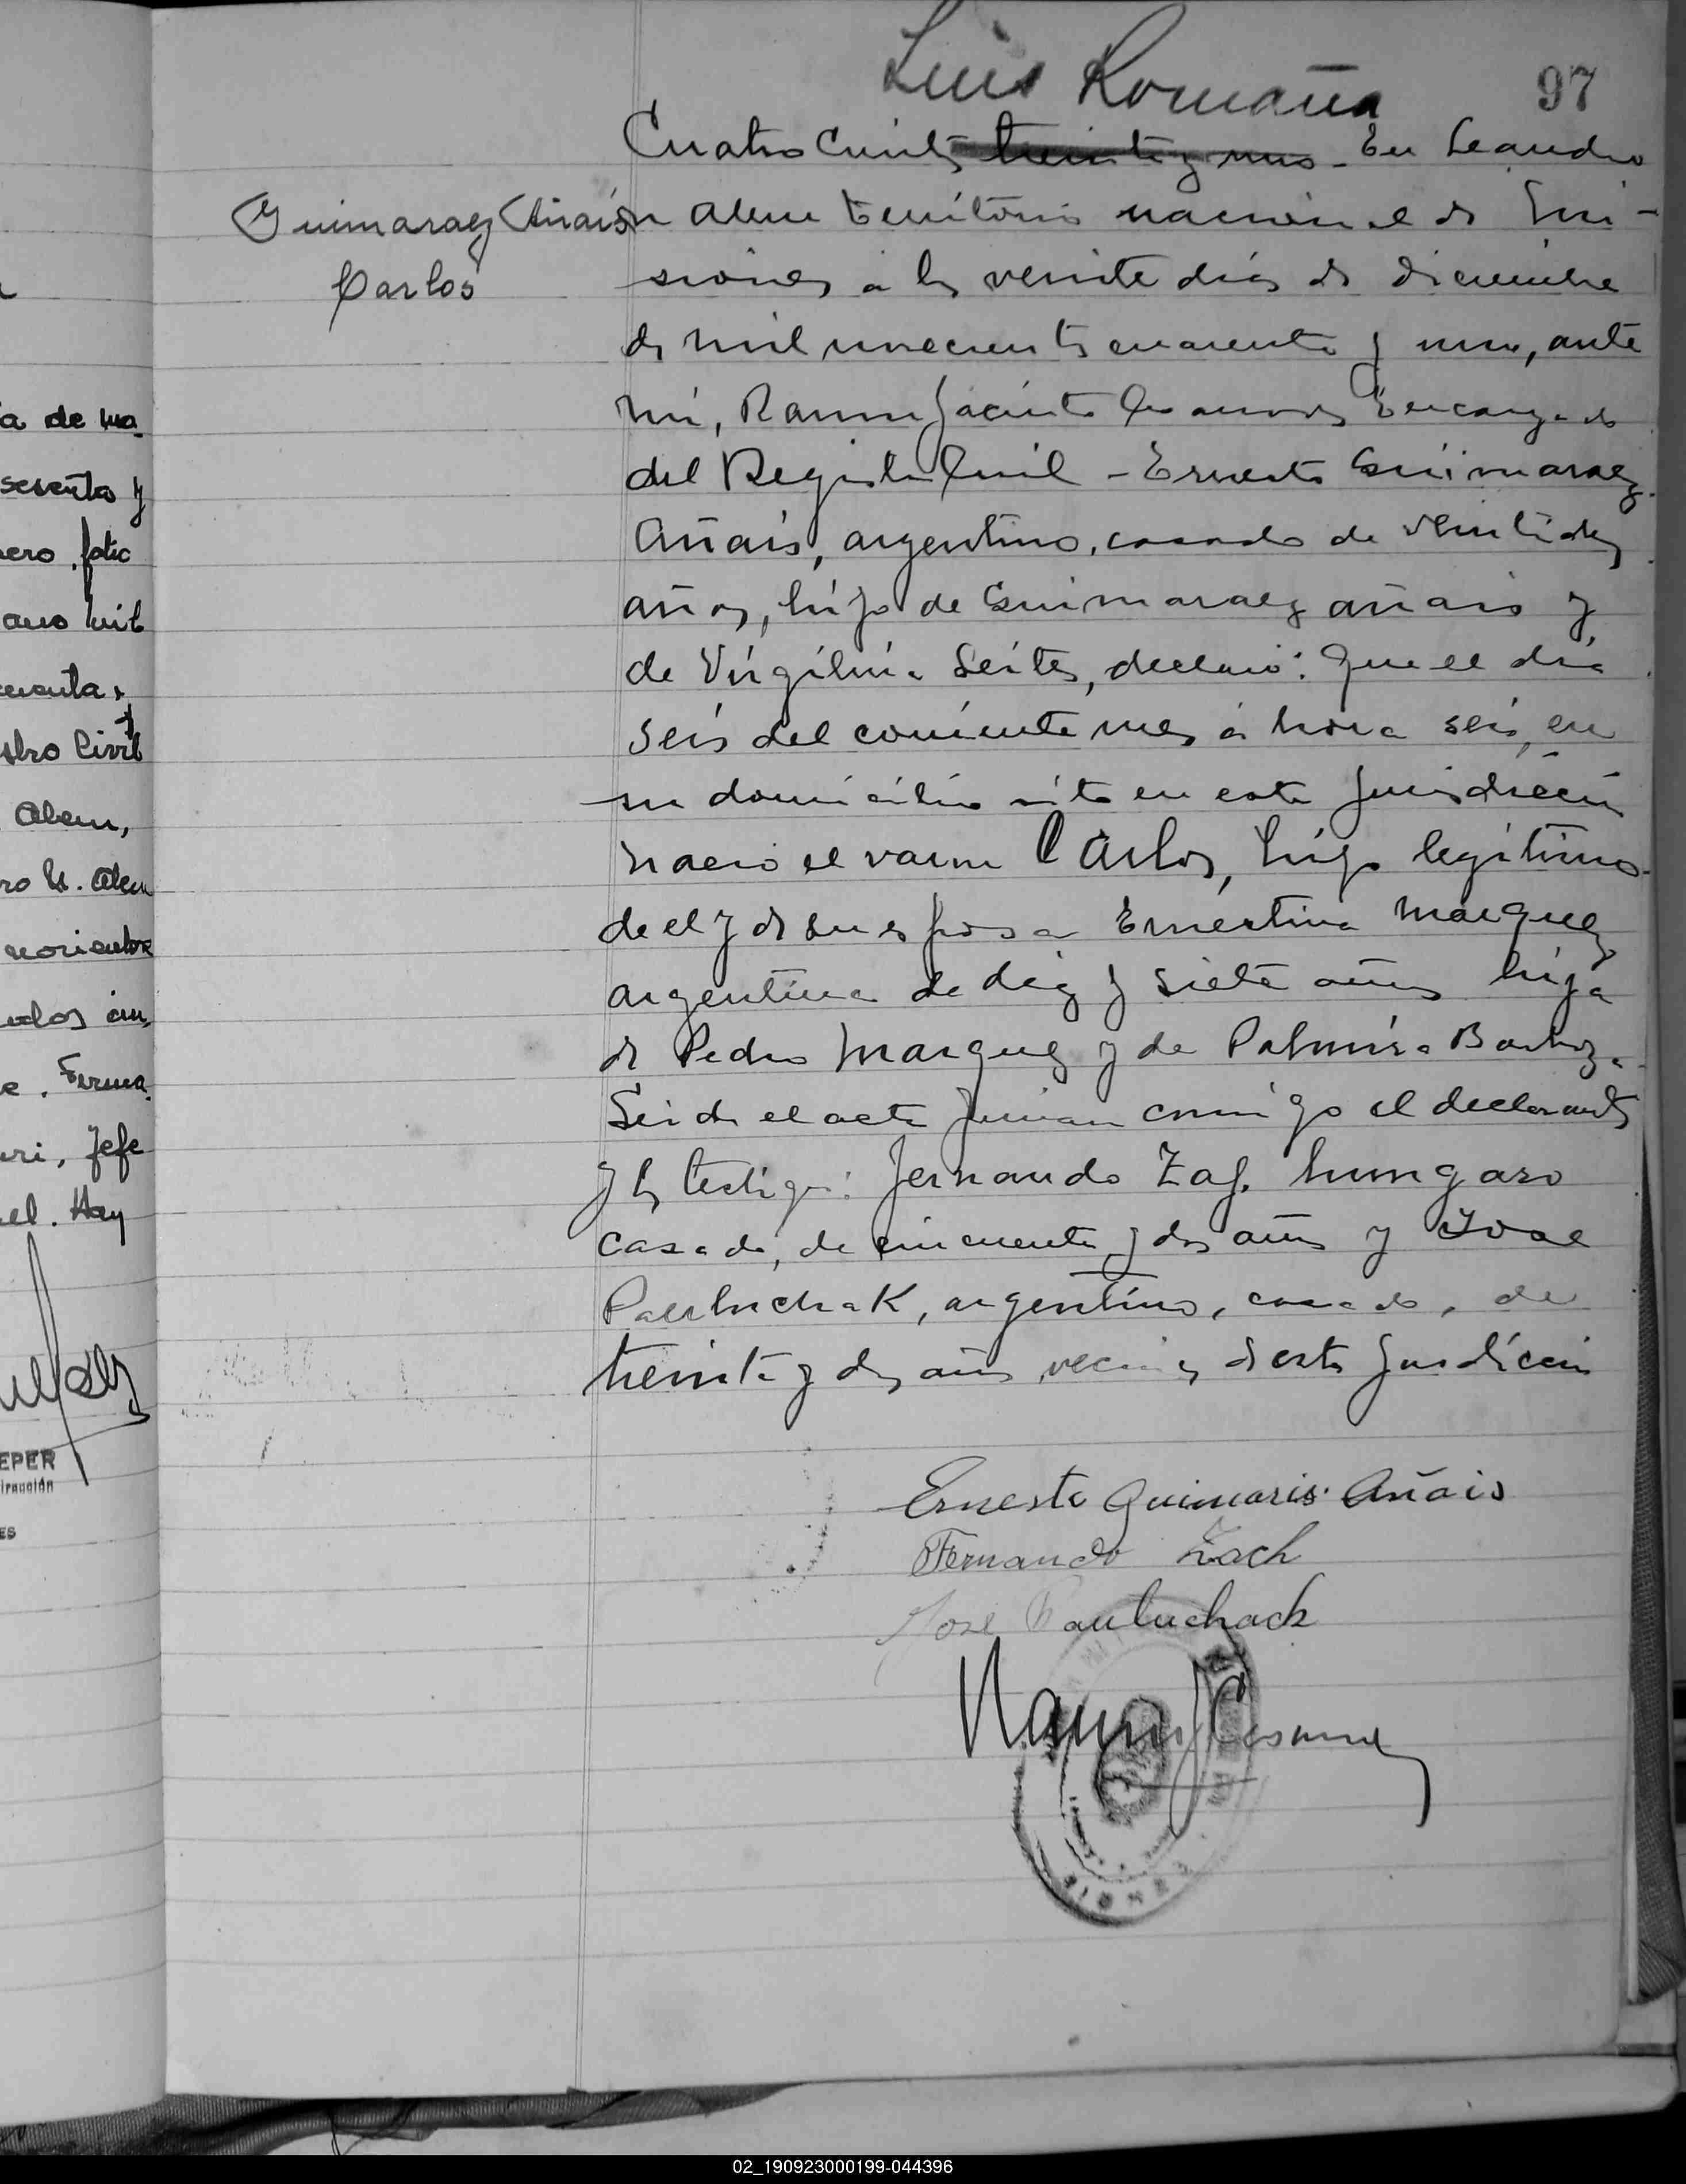 Luis Romaña
97
Cuatrocientos treinta y uno - En Leandro
Guimaraez Añais
Carlos
N Alem territorio nacional de Mi-
siones a los veinte dias de diciembre
de mil novecientos cuarenta y uno, ante
mi, Ramon Jacinto Encargado
del Registro Civil - Ernesto Guimaraez
Añais, argentino, casado de veintidos
años, hijo de Guimaraez añais y
de Virgilina Leites, declaró: Que el dia
seis del corriente mes a hora seis, en
su domicilio sito en esta jurisdiccion
nacio el varon Carlos, hijo legitimo
de el y de su esposa Ernestina Marquez
argentina de diez y siete años hija
de Pedro Marquez y de Palmira Barboza
Leida el acta firman conmigo el declarante
y los testigos: Fernando Zag. hungaro
casado, de cincuenta y dos años y José
PauluchaK, argentino, casado, de
treinta y dos años vecinos de esta jurisdiccion
Ernesto Guimaris Añais
Fernando Zach
Jose Pauluchack
Ramon J
a de ma
sesenta y
ero. folio
ano mil
stro Civil
Alem,
ro N. Alem
noviembre
e. Firma
uri, Jefe
el. Hay
EPER
irección
ES
02_190923000199-044396